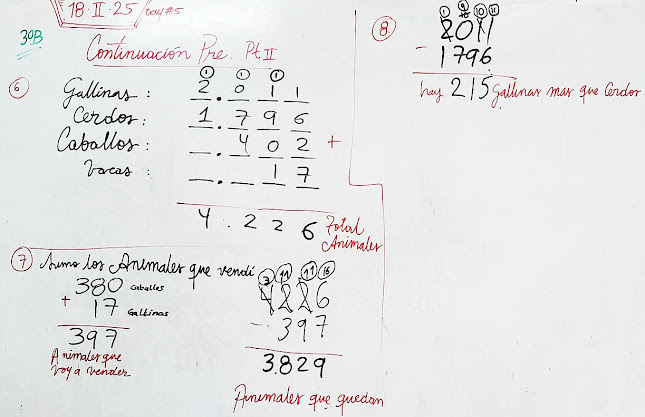 18·II·25 / Day #5
3ºB
Continuación Pre. Pt II
⑥
① ① ①
Gallinas : 2.011
Cerdos : 1.796
Caballos : 402 +
Vacas : 17
4.226 Total Animales
⑦ Sumo los Animales que vendí
380 Caballos
+ 17 Gallinas
397
Animales que
voy a vender
3 11 11 16
4226
- 397
3.829
Animales que quedan
⑧
1 9 10 11
2011
- 1796
hay 215 Gallinas mas que Cerdos